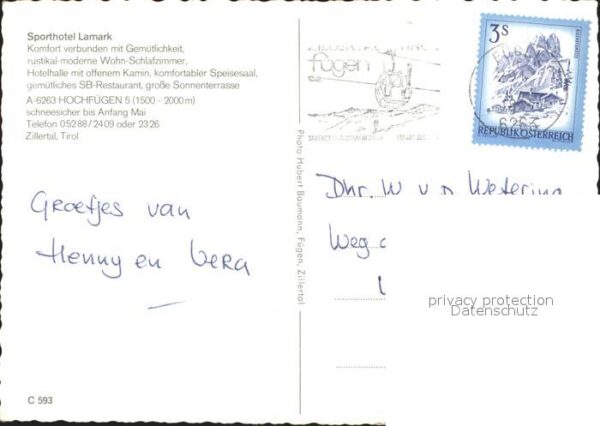 Sporthotel Lamark
Komfort verbunden mit Gemütlichkeit,
rustikal-moderne Wohn-Schlafzimmer,
Hotelhalle mit offenem Kamin, komfortabler Speisesaal,
gemütliches SB-Restaurant, große Sonnenterrasse
A-6263 HOCHFÜGEN 5 (1500 - 2000 m)
schneesicher bis Anfang Mai
Telefon 0 52 88 / 24 09 oder 23 26
Zillertal, Tirol
Groetjes van
Henny en Vera
C 593
Photo Hubert Baumann, Fügen, Zillertal
fügen
3s
REPUBLIK ÖSTERREICH
Dhr. W v d Wetering
Weg
privacy protection
Datenschutz